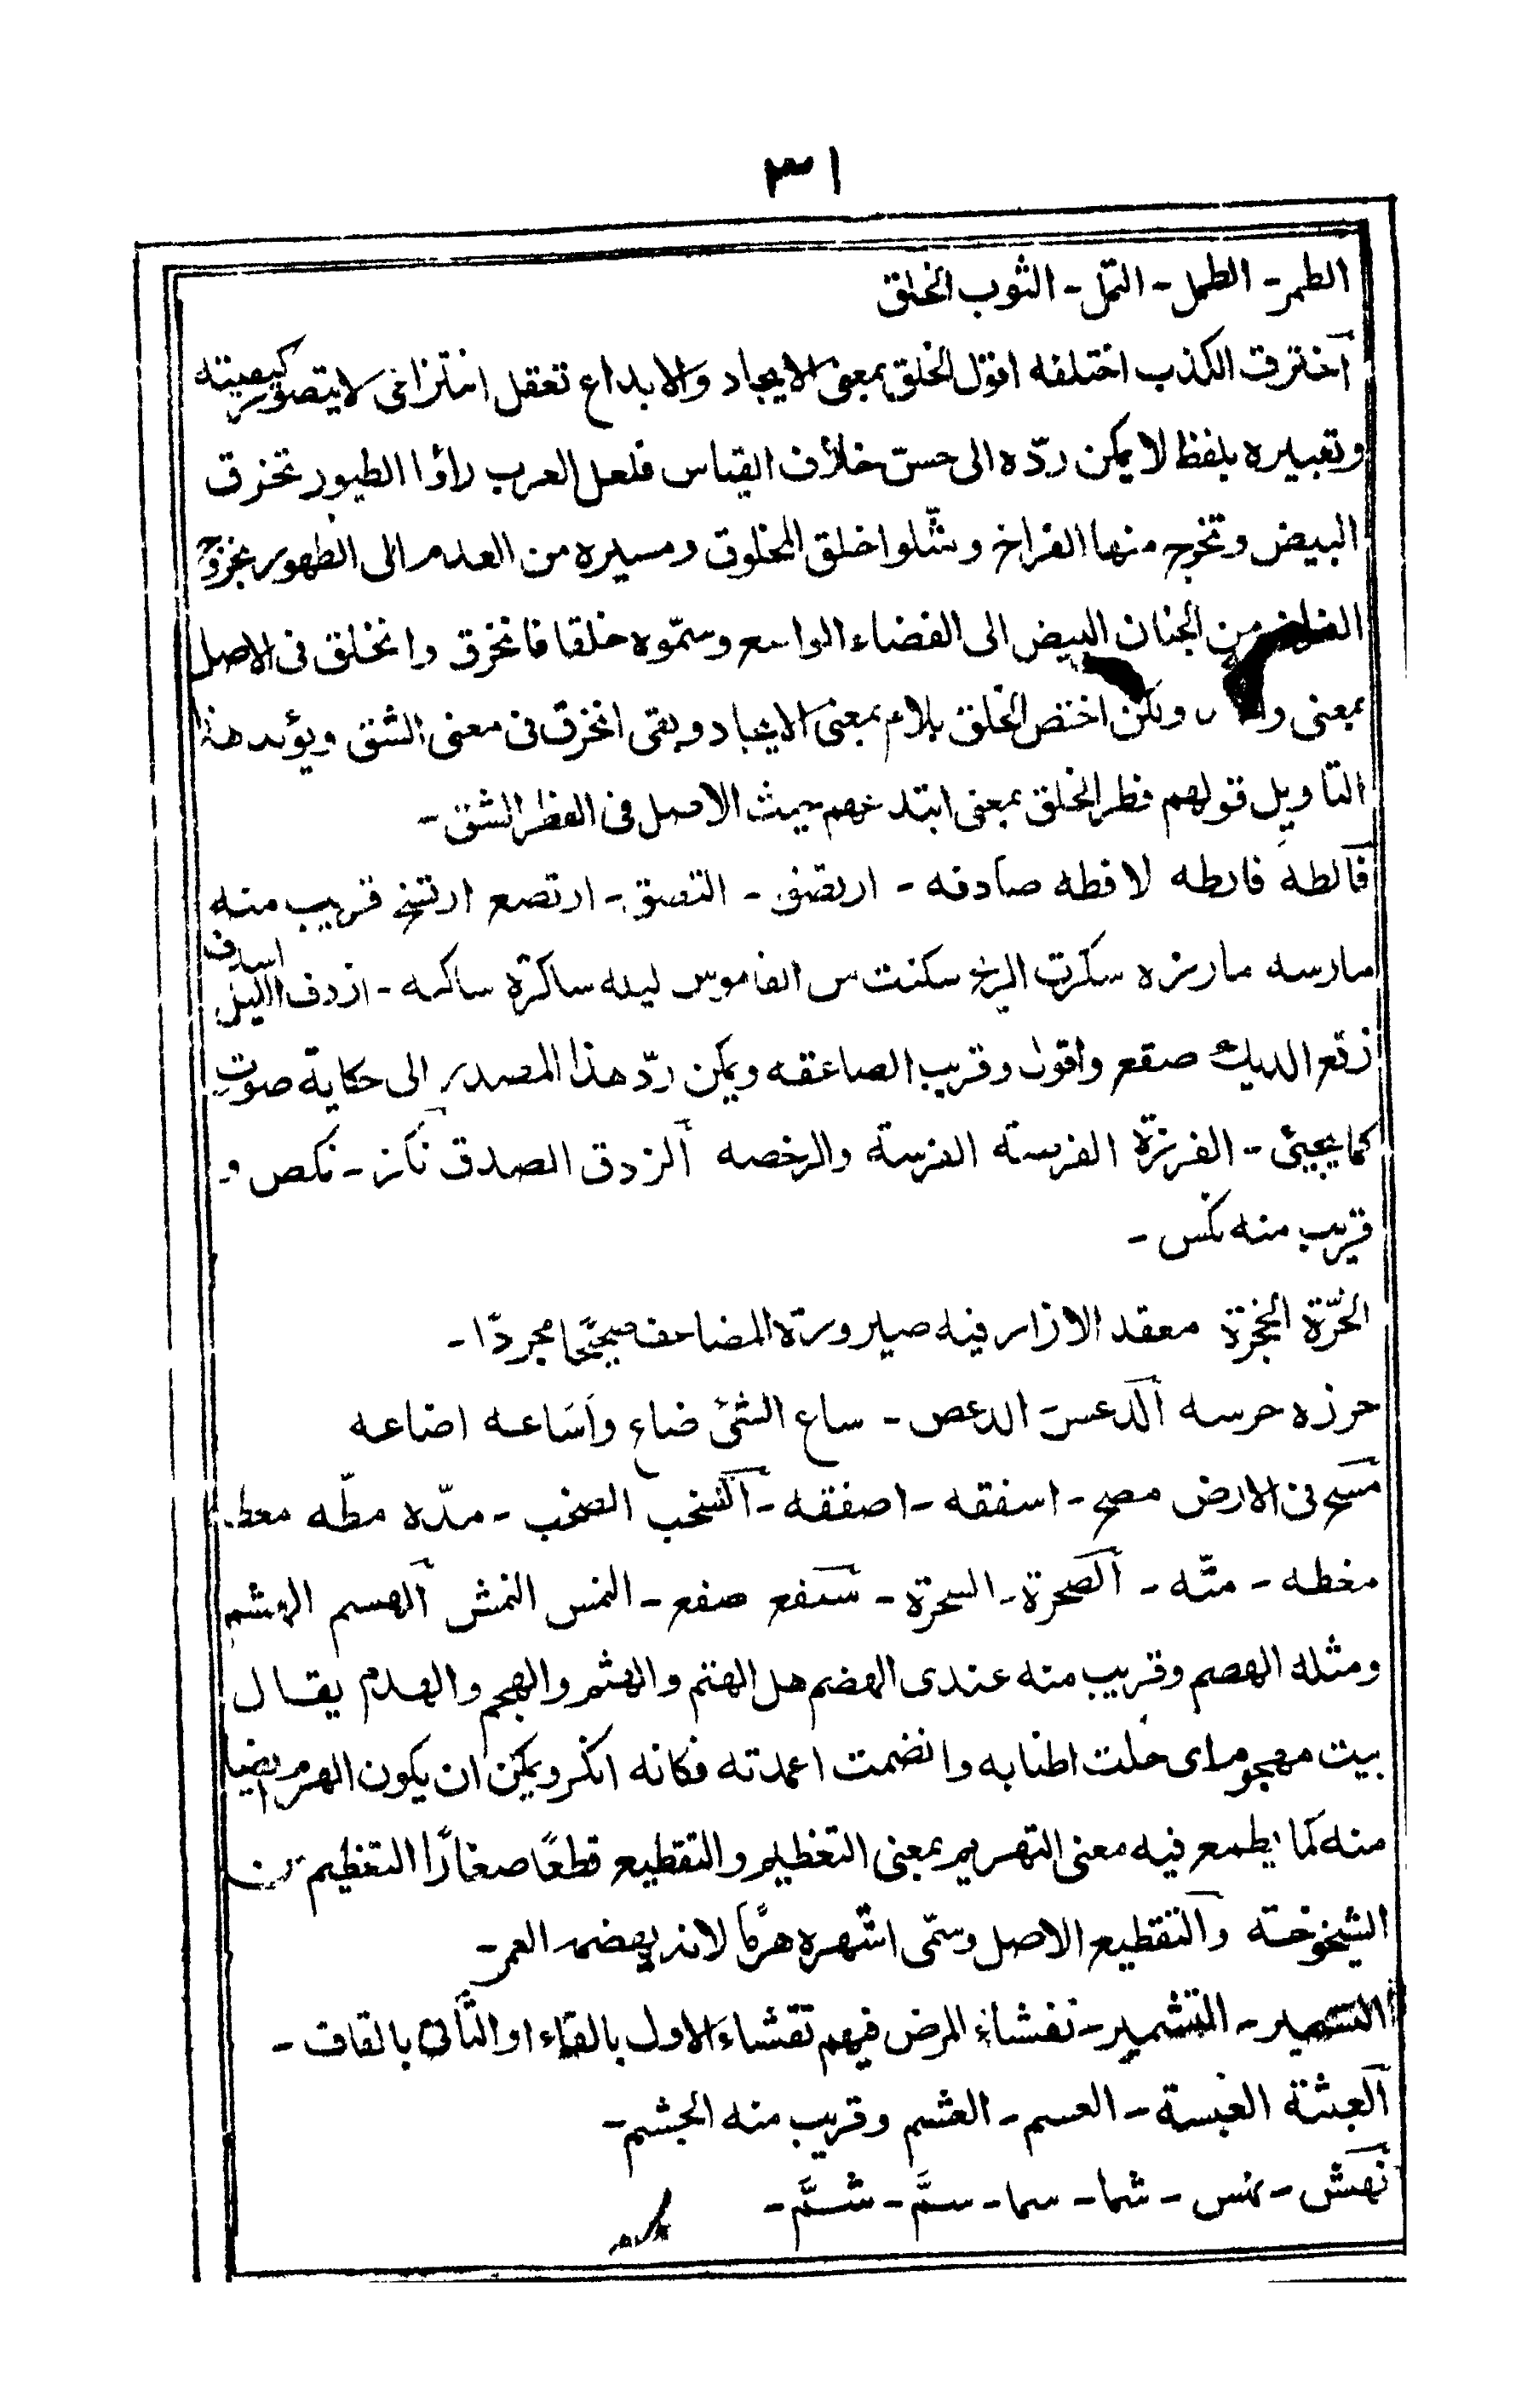 ٣١
الطمر - الطمل - التمل - الثوب الخلق
آخترق الكذب اختلقه اقول الخلق بمعنى الايجاد والابداع تعقل انتزاعى لايتصور كيفيته
وتعبيره بلفظ لا يمكن ردّه الى حسّ خلاف القياس فلعل العرب راؤا الطيور تخرق
البيض وتخرج منها الفراخ ومثّلوا خلق المخلوق ومسيره من العدم الى الظهور بخروج
الفراخ من الجنان البيض الى الفضاء الواسع وسمّوه خلقا فانخرق وانخلق فى الاصل
بمعنى ولكن اختص الخلق بلام بمعنى الايجاد وبقى انخرق فى معنى الشق ويؤيد هذا
التاويل قولهم فطر الخلق بمعنى ابتدعهم حيث الاصل فى الفطر الشق -
فالطه فارطه لافطه صادفه - ارتصق - التصق - ارتصع ارتسخ قريب منه
مارسه مارزه سكرت الريح سكنت س القاموس ليله ساكرة ساكنه - ازدف الليل اسدف
زقع الديك صقع واقول وقريب الصاعقه ويمكن ردّ هذا المصدر الى حكاية صوت
كما يجيئ - الفرزة الفرسته الفرسة والرخصه آلزدق الصدق نَكز - نكص و
قريب منه نكس -
الحُزّة الحجزة معقد الازار فيه صيرورة المضاعف صحيحًا مجردًا -
حرزه حرسه آلدعس الدعص - ساع الشئ ضاع واَسَاعه اضاعه
مسح فى الارض مصح - اسفقه - اصفقه - آلسخب الصخب - مدّه مطّه معطه
مغطه - متّه - آلصحرة - السحرة - سقع صقع - النمس النمش آلهسم الهشم
ومثله الهصم وقريب منه عندى الهضم هل الهتم والهثم والهجم والهدم يقال
بيت مهجوم اى حلت اطنابه وانضمت اعمدته فكانه انكسر ويمكن ان يكون الهرم ايضا
منه كما يطمع فيه معنى التهريم بمعنى التعظيم والتقطيع قطعًا صغارًا التعظيم من
الشيخوخته والتقطيع الاصل وسمّى اشهره هرَمًا لانه يهضمه العمر -
التسمير - التشمير - تفشاء المرض فيهم تقشاء الاول بالفاء او الثانى بالقاف -
آلعبثة الغبسة - العسم - العشم وقريب منه الجشم -
نهَش - نهس - شما - سما - سمَّ - شمَّ -